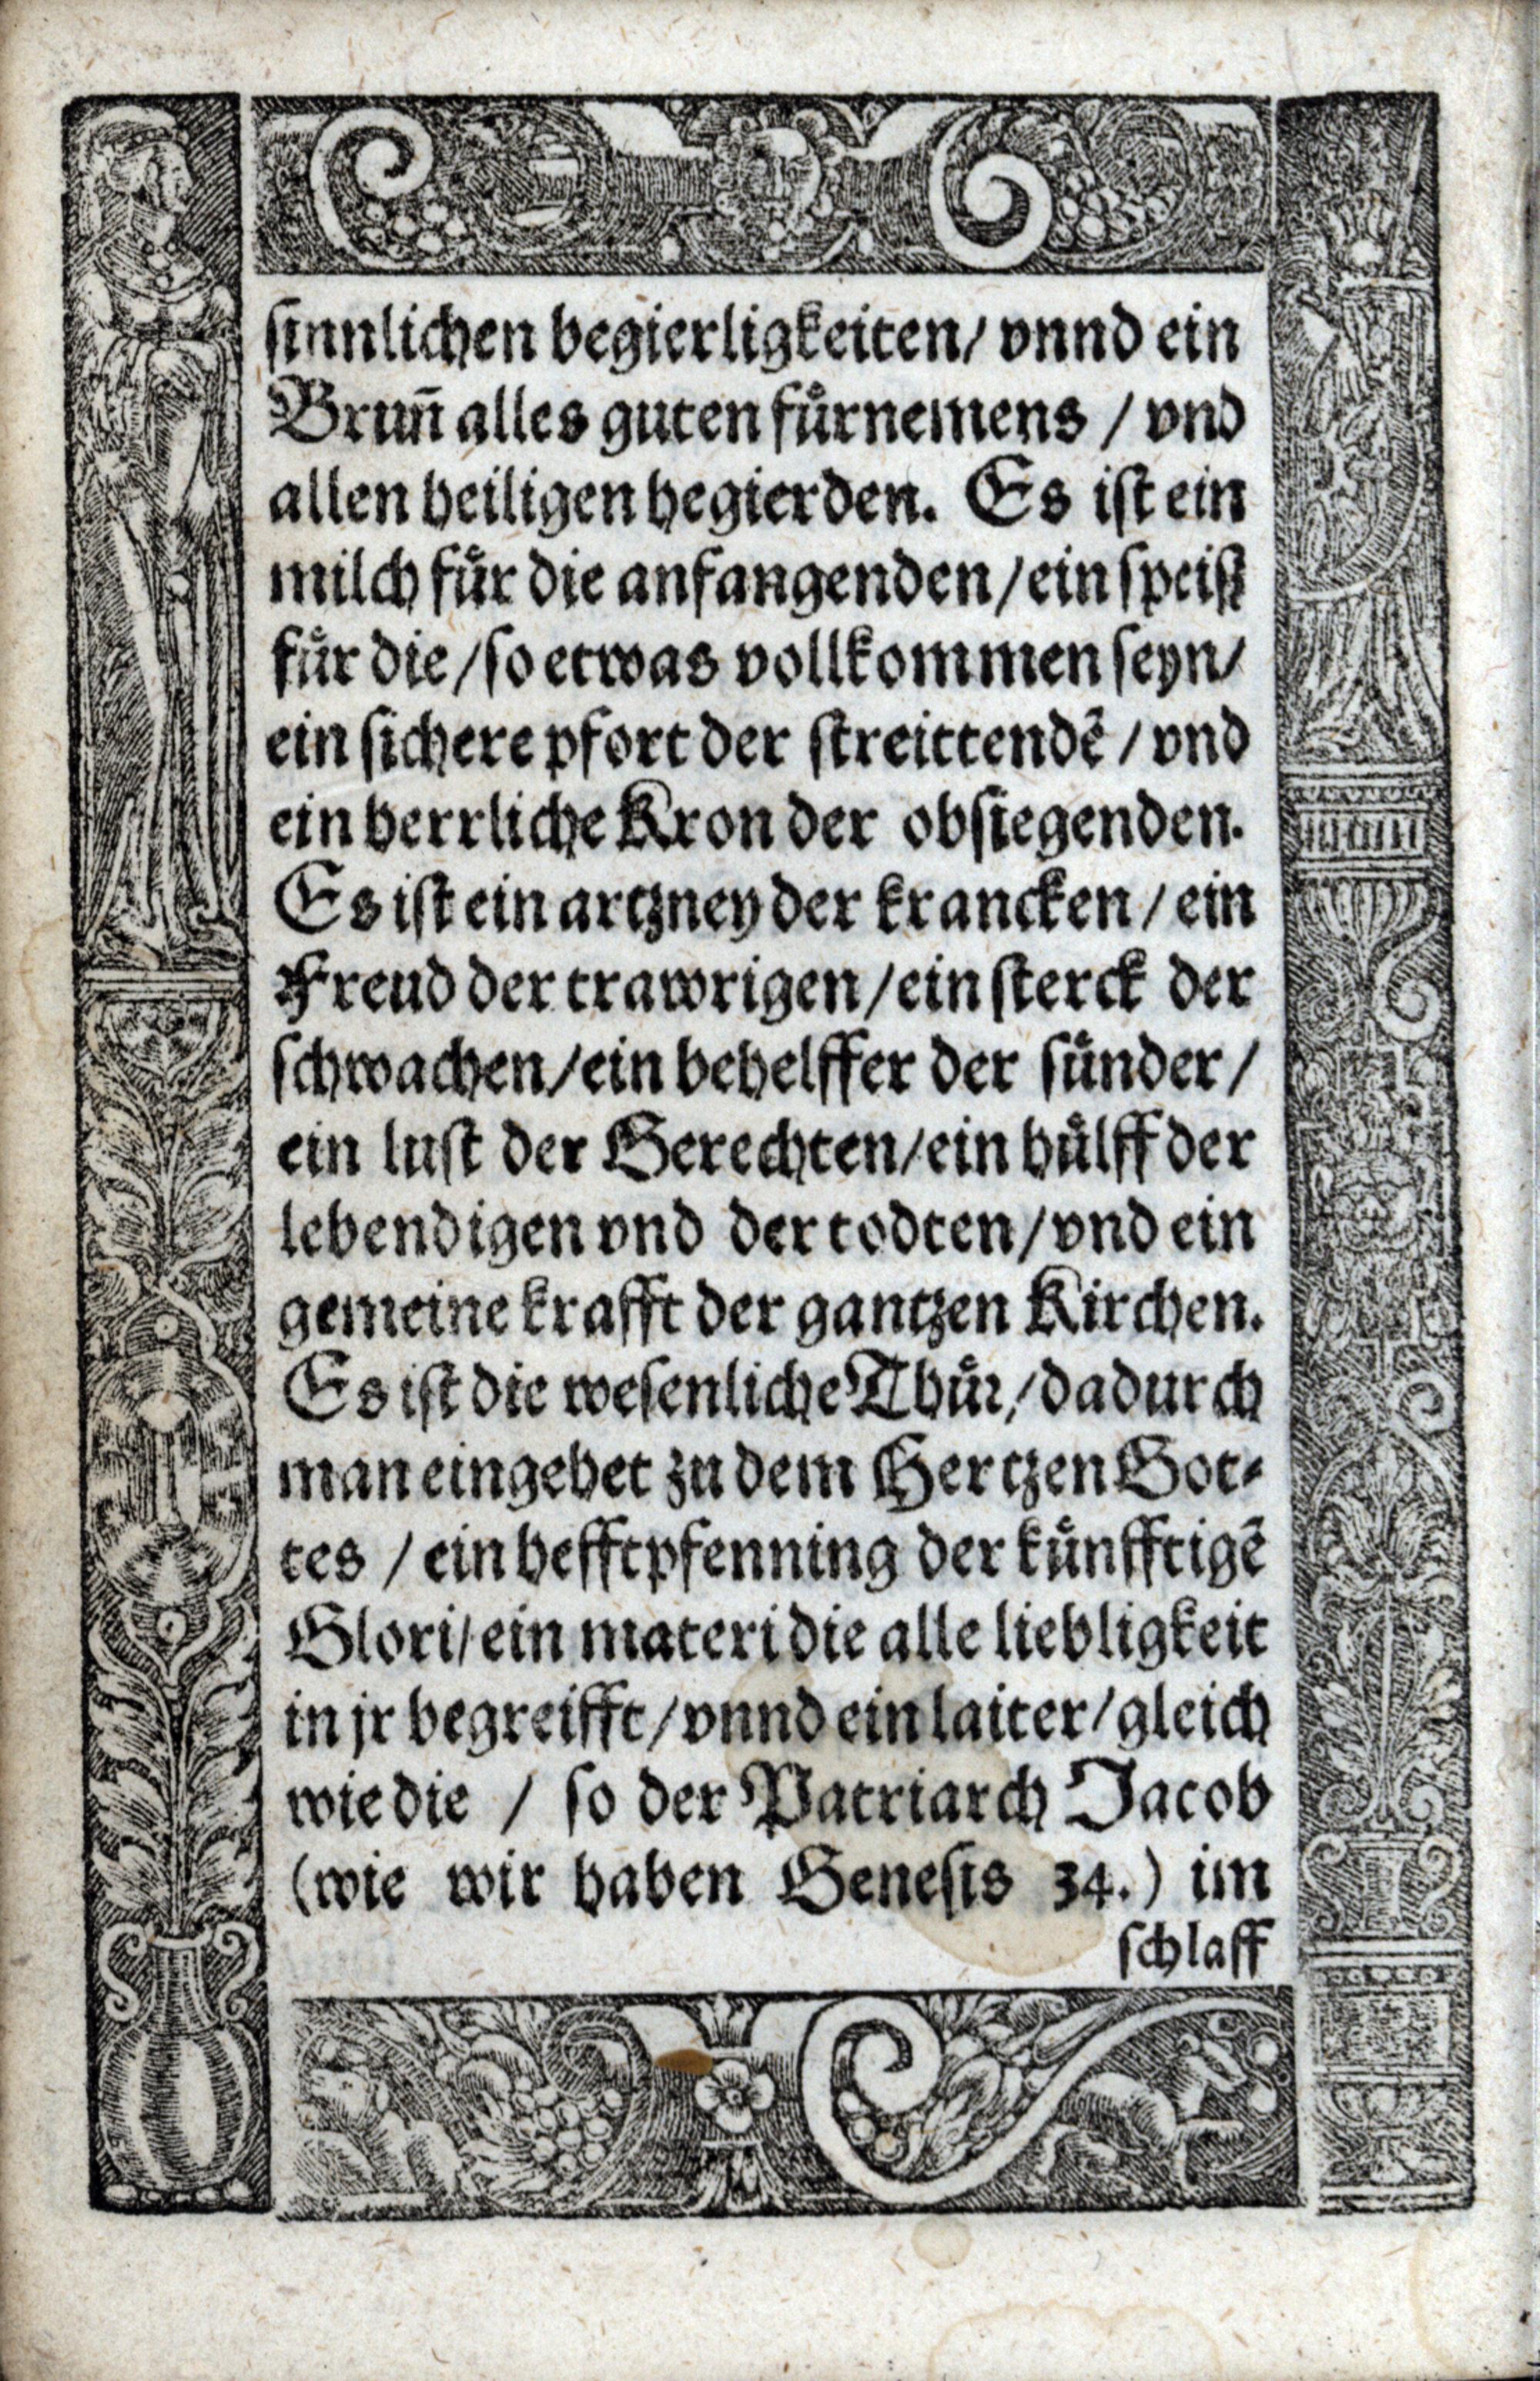 sinnlichen begierligkeiten/ vnnd ein
Brun̄ alles guten fuͤrnemens / vnd
allen heiligen begierden. Es ist ein
milch fuͤr die anfangenden / ein speiß
fuͤr die / so etwas vollkommen seyn/
ein sichere pfort der streittendē / vnd
ein herrliche Kron der obsiegenden.
Es ist ein artzney der krancken / ein
Freud der trawrigen / ein sterck der
schwachen / ein behelffer der suͤnder /
ein lust der Gerechten / ein huͤlff der
lebendigen vnd der todten / vnd ein
gemeine krafft der gantzen Kirchen.
Es ist die wesenliche Thuͤr / dadurch
man eingehet zu dem Hertzen Got⸗
tes / ein hefftpfenning der kuͤnfftigē
Glori / ein materi die alle liebligkeit
in jr begreifft / vnnd ein laiter / gleich
wie die / so der Patriarch Jacob
(wie wir haben Genesis 34.) im
schlaff